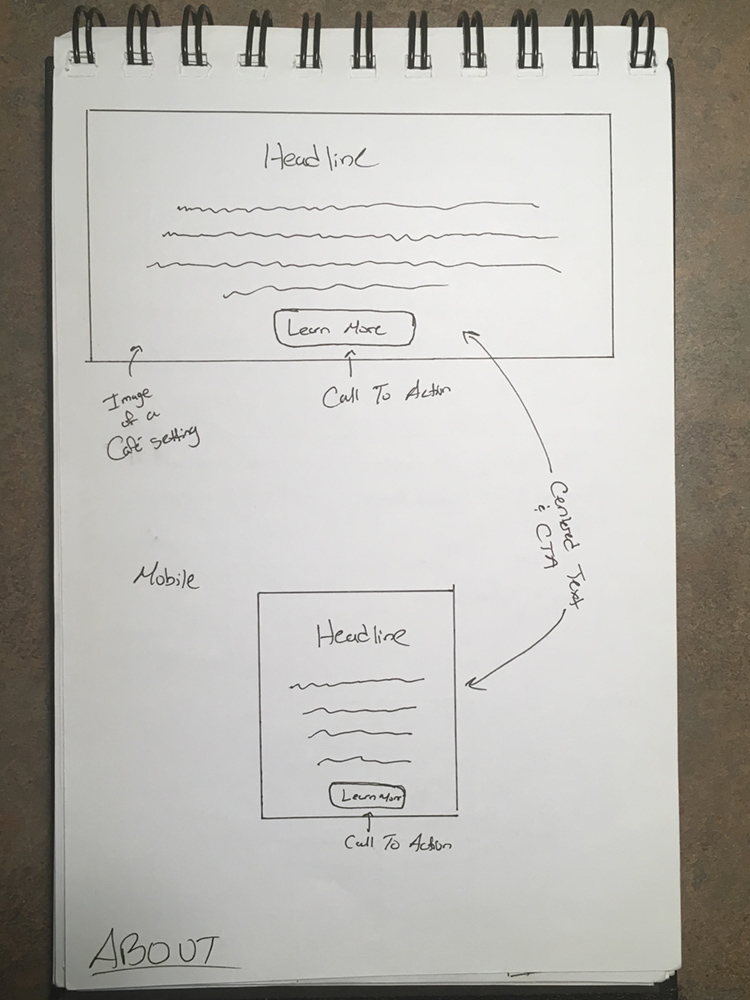 Headline
Learn More
Image
of a
Café setting
Call To Action
Centered Text
& CTA
Mobile
Headline
Learn More
Call To Action
ABOUT